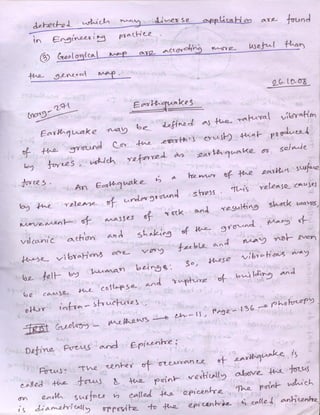 detected which may diverse application are found
in Engineering practice.
③ Geological map are according more useful than
the general map.
26.10.08
Geng-271
Earthquakes
Earthquake may be defined as the natural vibration
of the ground (or the earth's crust) that produced
by forces, which referred as earthquake or seismic
forces.
An Earthquake is a tremor of the earth's surface
by the release of underground stress. This release causes
movement of masses of rock and resulting shock waves,
volcanic action and shaking of the ground. Many of
these vibrations are very feeble and may not even
be felt by human beings. So, these vibrations may
be cause, the collapse, and rupture of building and
other infra-structures.
Geology - Mathews → ch-11, Page-136 → photocopy
Define Focus and Epicentre:
Focus: The center of occurance of earthquake is
called the focus & the point vertically above the focus
on earth surface is called the epicentre. The point which
is diametrically opposite to the epicentre is called anticentre